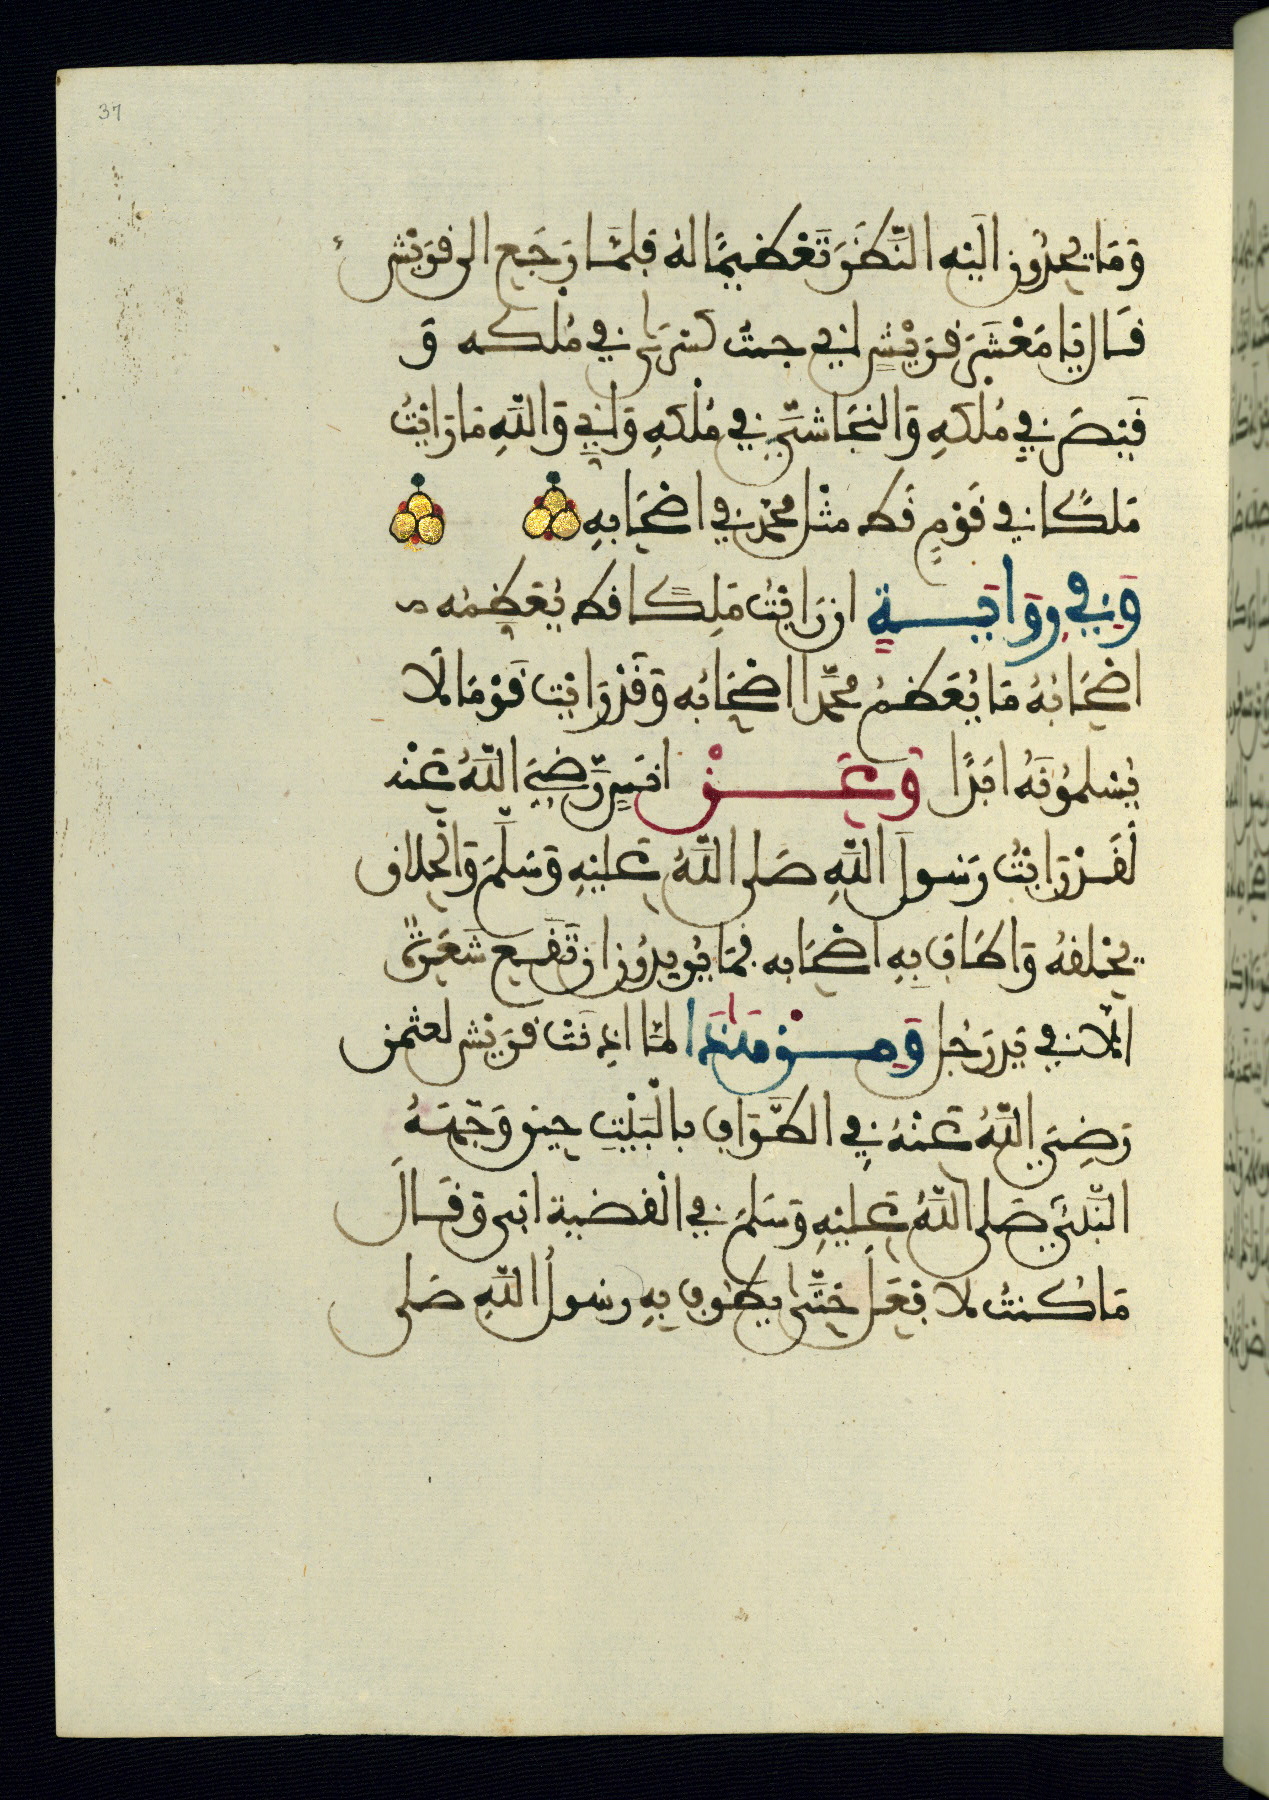 37
وَمَا يحِدُّونَ إلَيْهِ النَّظَرَ تَعْظِيمًا لهُ فَلَمَّا رَجَعَ الى قُرَيْشٍ
قَال يَا مَعْشَرَ قُرَيْشٍ إني جئتُ كسْرَى في مُلْكه وَ
قَيْصَرَ في مُلْكِهِ وَالنجَاشيَّ في مُلْكِهِ وَإني وَاللَّهِ مَا رَايْتُ
مَلكًا في قَوْمٍ قَط مثْل محَمّد في اصْحَابهِ
وَفي رِوَايَةٍ ان رَايْتُ مَلِكًا قط يُعَظمُه
اصْحَابُهُ مَا يُعَظمُ محمَّدا اصْحَابُه وَقَدْ رَايْت قَوْمًا لَا
يُسْلمُونَهُ ابَدًا وَعَنْ انَسٍ رَّضِيَ اللَّهُ عَنْه
لَقَدْ رَايْتُ رَسولَ اللَّهِ صَلى اللَّهُ عَليْهِ وَسَلَّمَ وَالْحَلاق
يحْلقهُ وَاطَافَ بِهِ اصْحَابه فمَا يُرِيدُونَ ان تَقَع شَعَرَةٌ
الَّا في يَدِ رَجُل وَمِنْ هَذَا لمَّا اذِنَتْ قُرَيْش لعثمن
رَضِيَ اللَّهُ عَنْهُ في الطَّوَافِ بِالْبَيْتِ حِينَ وَجَّهَهُ
النَّبيُّ صَلى اللَّهُ عَليْهِ وَسَلمَ في الْقضية ابى وَقَالَ
مَا كُنتُ لافْعَلَ حَتَّى يَطُوفَ بِهِ رسُولُ اللَّهِ صَلى